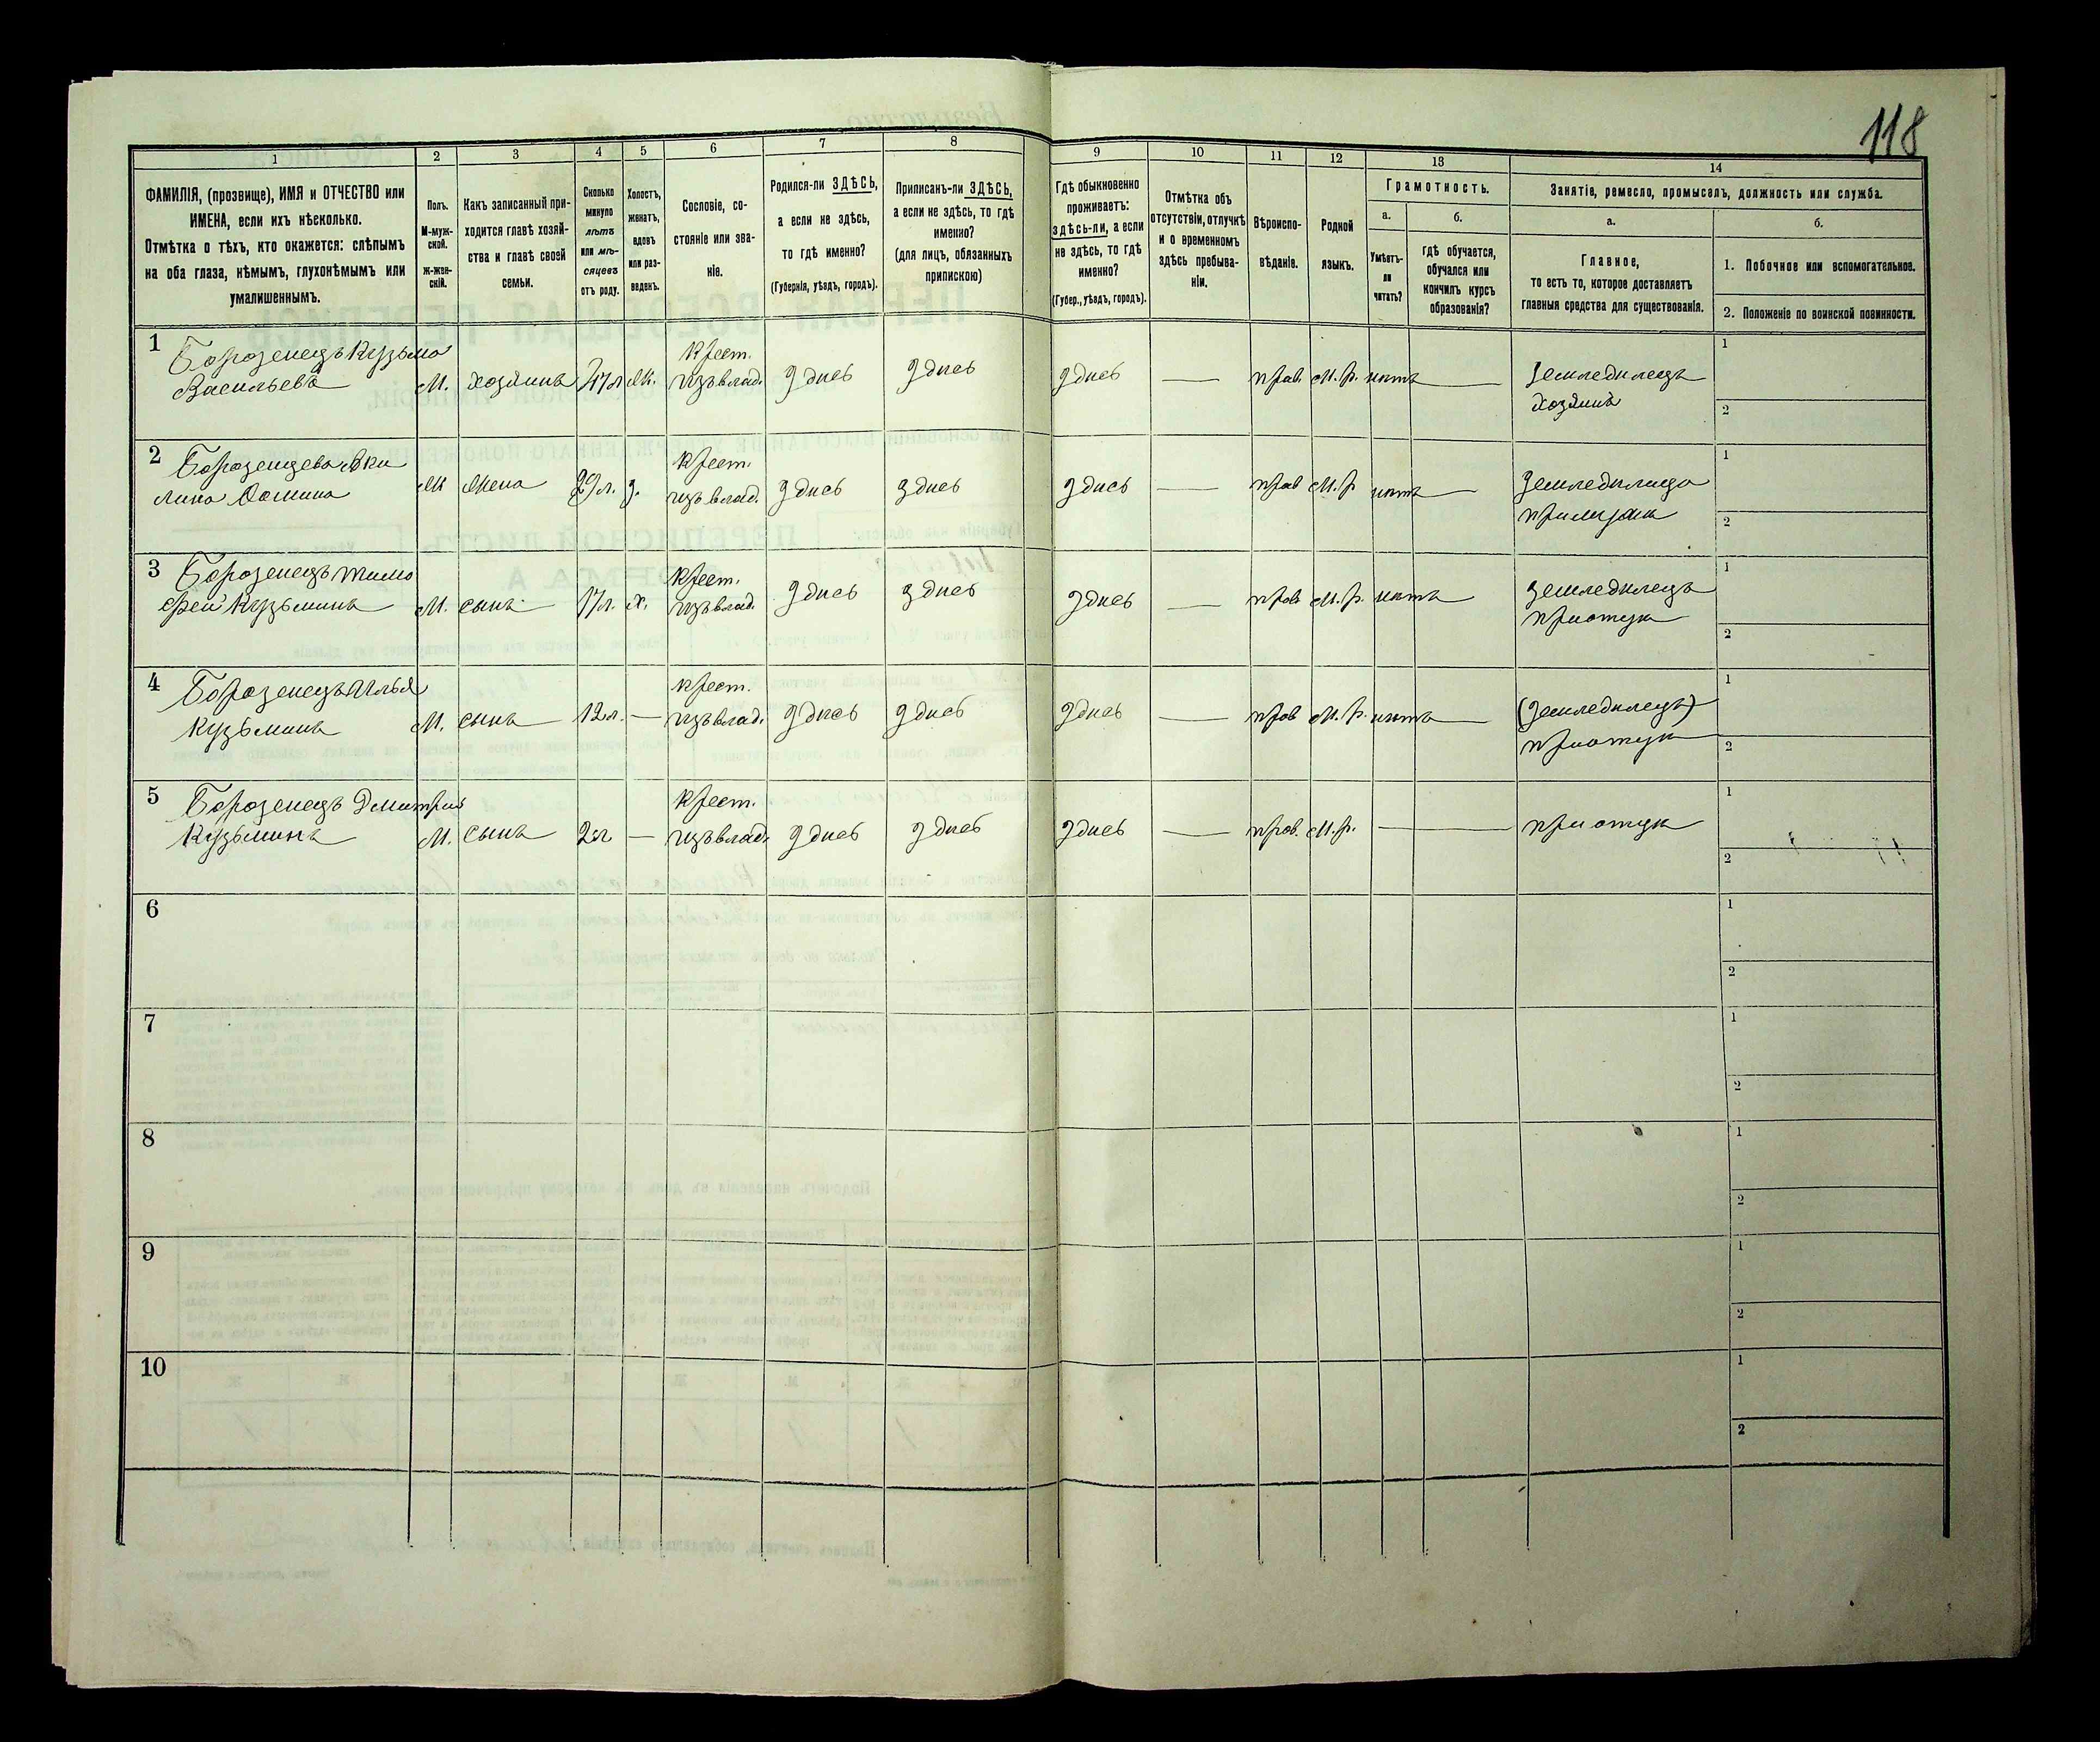 118
1 2 3 4 5 6 7 8 9 10 11 12 13 14
ФАМИЛІЯ, (прозвище), ИМЯ и ОТЧЕСТВО или
ИМЕНА, если ихъ нѣсколько.
Отмѣтка о тѣхъ, кто окажется: слѣпымъ
на оба глаза, нѣмымъ, глухонѣмымъ или
умалишеннымъ.
Полъ.
М-муж-
ской.
Ж-жен-
скій.
Какъ записанный при-
ходится главѣ хозяй-
ства и главѣ своей
семьи.
Сколько
минуло
лѣтъ
или мѣ-
сяцевъ
отъ роду.
Холостъ,
женатъ,
вдовъ
или раз-
веденъ.
Сословіе, со-
стояніе или зва-
ніе.
Родился-ли ЗДѢСЬ,
а если не здѣсь,
то гдѣ именно?
(Губернія, уѣздъ, городъ).
Приписанъ-ли ЗДѢСЬ,
а если не здѣсь, то гдѣ
именно?
(для лицъ, обязанныхъ
припискою)
Гдѣ обыкновенно
проживаетъ:
здѣсь-ли, а если
не здѣсь, то гдѣ
именно?
(Губер., уѣздъ, городъ).
Отмѣтка объ
отсутствіи, отлучкѣ
и о временномъ
здѣсь пребыва-
ніи.
Вѣроиспо-
вѣданіе.
Родной
языкъ.
Грамотность.
а.
Умѣетъ-
ли
читать?
б.
гдѣ обучается,
обучался или
кончилъ курсъ
образованія?
Занятіе, ремесло, промыселъ, должность или служба.
а.
Главное,
то есть то, которое доставляетъ
главныя средства для существованія.
б.
1. Побочное или вспомогательное.
2. Положеніе по воинской повинности.
1 Борозенецъ Кузьма
Васильевъ М. хозяинъ 47 л Ж. Крест. изъ влад. здѣсь здѣсь здѣсь — прав. М.р. нѣтъ — Земледѣлецъ
хозяинъ
1
2
2 Борозенцева Аки
лина Фомина Ж жена л. з. Крест. изъ влад. здѣсь здѣсь здѣсь — прав М.р нѣтъ — Земледѣлица
при мужѣ
1
2
3 Борозенецъ Тимо
фей Кузьминъ М. сынъ 17 л. х. Крест. изъ влад. здѣсь здѣсь здѣсь — прав М.р. нѣтъ Земледѣлецъ
при отцѣ
1
2
4 Борозенецъ Илья
Кузьминъ М. сынъ 12 л. — крест. изъ влад. здѣсь здѣсь здѣсь — прав М.р. нѣтъ — (Земледѣлецъ)
при отцѣ
1
2
5 Борозенецъ Дмитрий
Кузьминъ М. сынъ 2 л — Крест. изъ влад. здѣсь здѣсь здѣсь — прав. М.р. — при отцѣ
1
2
6
1
2
7
1
2
8
1
2
9
1
2
10
1
2